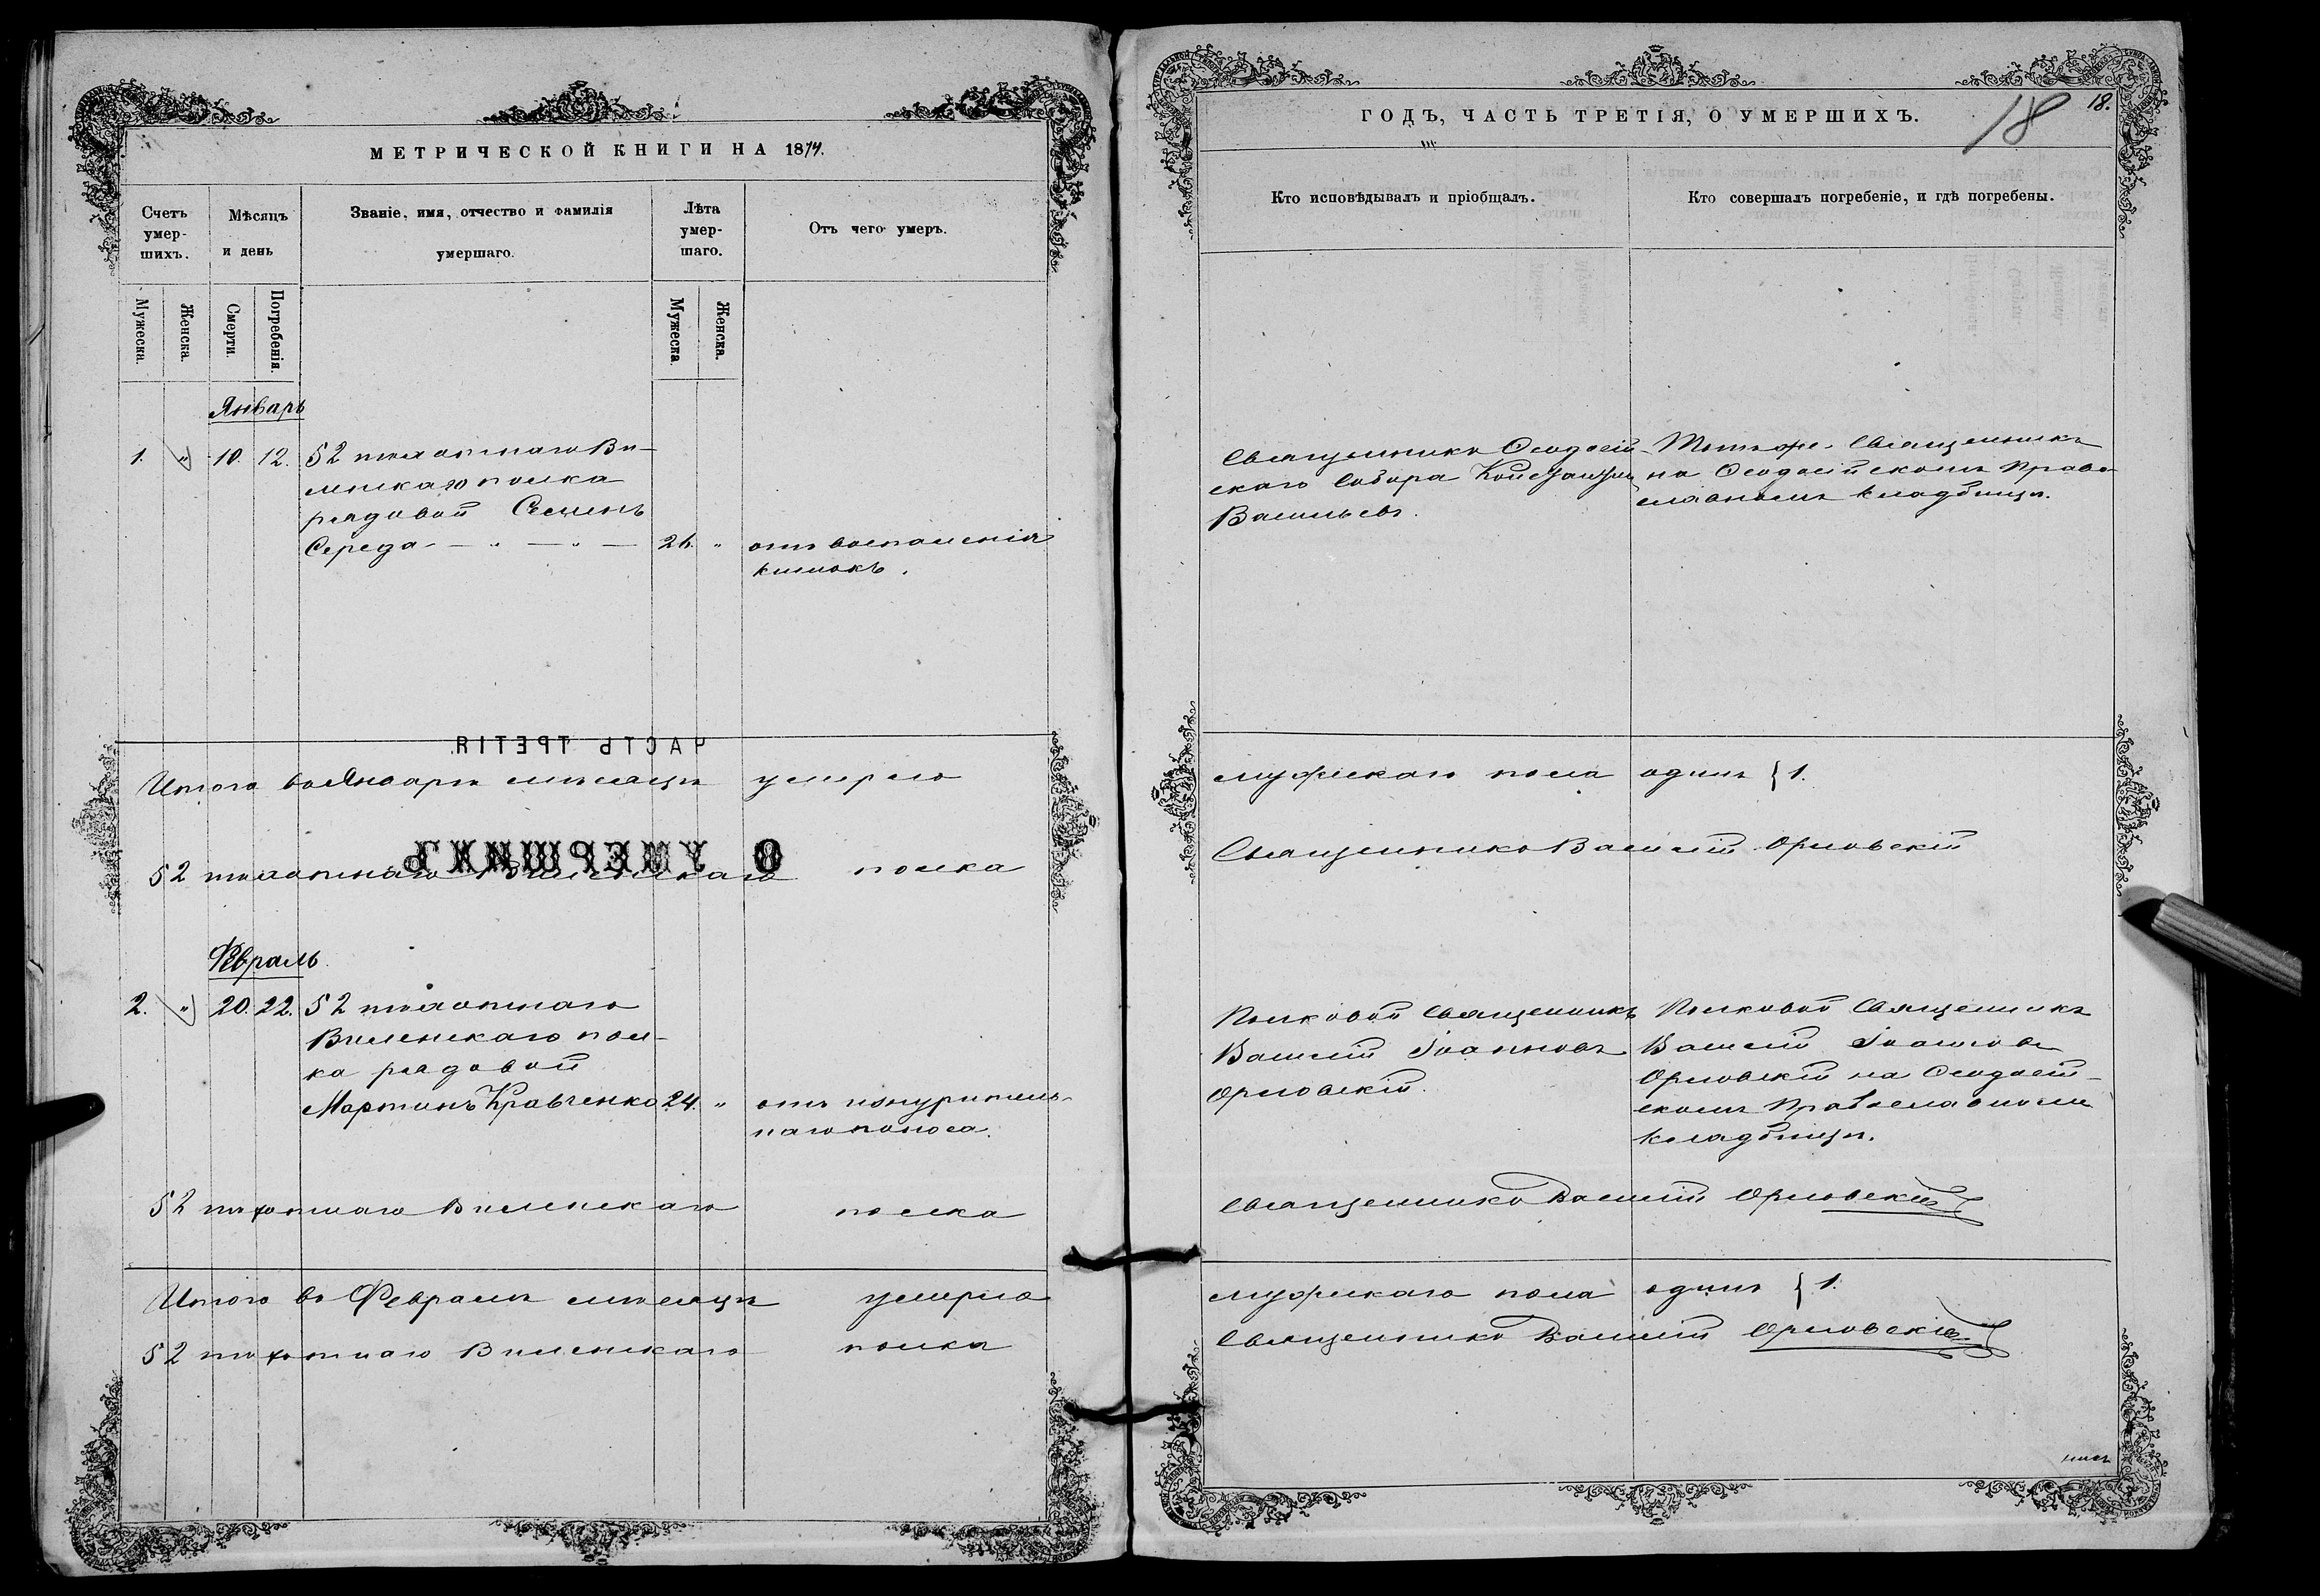 МЕТРИЧЕСКОЙ КНИГИ НА 1874.
Счетъ умер-шихъ.
Мѣсяцъ и день
Званіе, имя, отчество и фамилія умершаго.
Лѣта умер-шаго.
Отъ чего умеръ.
Мужеска.
Женска.
Смерти.
Погребенія.
Мужеска
Женска.
Январь
1. " 10. 12. 52 пѣхотнаго Ви-
ленскаго полка
рядовой Семенъ
Середа - " - " - 26. " отъ воспаленія
кишокъ.
ЧАСТЬ ТРЕТІЯ
Итого въ Январѣ мѣсяцѣ умерло
О УМЕРШИХЪ
52 пѣхотнаго Виленскаго полка
Февраль
2. " 20. 22. 52 пѣхотнаго
Виленскаго пол-
ка рядовой
Мартинъ Кравченко 24. " отъ изнуритель-
наго поноса.
52 пѣхотнаго Виленскаго полка
Итого въ Февралѣ мѣсяцѣ умерло
52 пѣхотнаго Виленскаго полка
ГОДЪ, ЧАСТЬ ТРЕТІЯ, О УМЕРШИХЪ.
18
18.
Кто исповѣдывалъ и пріобщалъ.
Кто совершалъ погребеніе, и гдѣ погребены.
Священникъ Ѳеодосій-
скаго Собора Константинъ
Васильевъ.
Тотъ же Священникъ
на Ѳеодосійскомъ Право-
славномъ кладбищѣ.
мужскаго пола одинъ } 1.
Священникъ Василій Орловскій
Полковой Священникъ
Василій Іоанновъ
Орловскій.
Полковой Священникъ
Василій Іоанновъ
Орловскій на Ѳеодосій-
скомъ Православномъ
кладбищѣ.
Священникъ Василій Орловскій
мужскаго пола одинъ } 1.
Священникъ Василій Орловскій